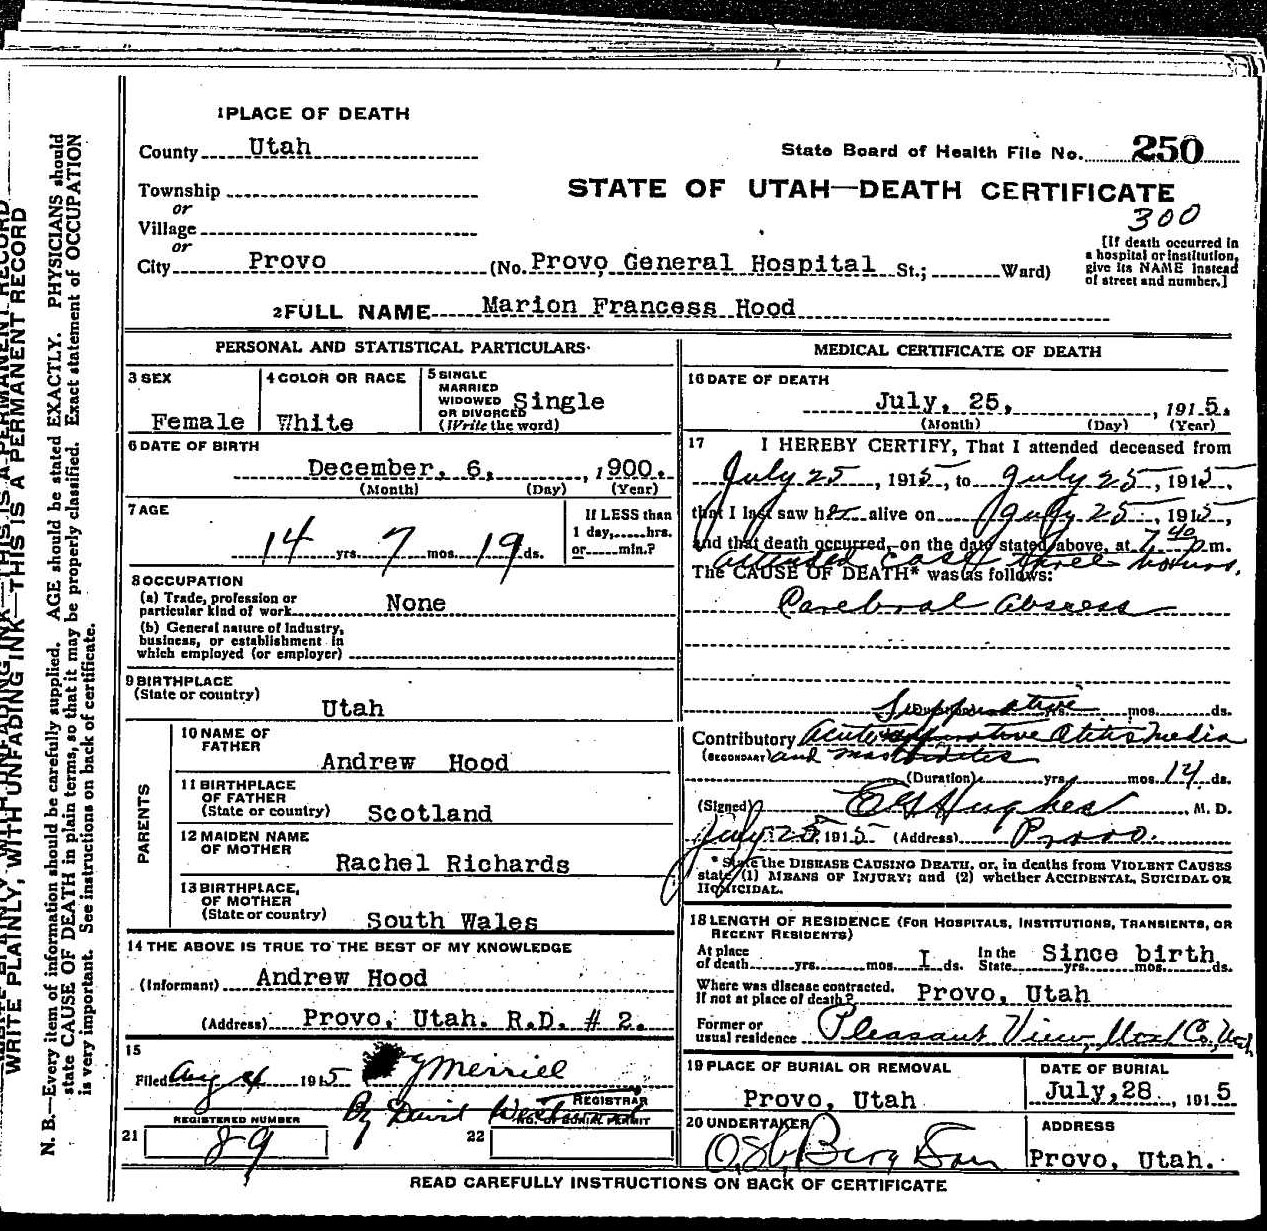 1 PLACE OF DEATH
County Utah
State Board of Health File No. 250
Township
or
Village
or
City Provo (No. Provo General Hospital St.; Ward)
STATE OF UTAH—DEATH CERTIFICATE
300
[If death occurred in
a hospital or institution,
give its NAME instead
of street and number.]
2 FULL NAME Marion Francess Hood
PERSONAL AND STATISTICAL PARTICULARS
3 SEX
Female
4 COLOR OR RACE
White
5 SINGLE
MARRIED
WIDOWED
OR DIVORCED
(Write the word)
Single
6 DATE OF BIRTH
December, 6, , 1900.
(Month) (Day) (Year)
7 AGE
14 yrs. 7 mos. 19 ds.
If LESS than
1 day,.....hrs.
or.....min.?
8 OCCUPATION
(a) Trade, profession or
particular kind of work None
(b) General nature of Industry,
business, or establishment in
which employed (or employer)
9 BIRTHPLACE
(State or country)
Utah
PARENTS
10 NAME OF
FATHER
Andrew Hood
11 BIRTHPLACE
OF FATHER
(State or country) Scotland
12 MAIDEN NAME
OF MOTHER
Rachel Richards
13 BIRTHPLACE,
OF MOTHER
(State or country) South Wales
14 THE ABOVE IS TRUE TO THE BEST OF MY KNOWLEDGE
(Informant) Andrew Hood
(Address) Provo, Utah. R.D. # 2.
15
Filed Aug 4 1915 Merrill
REGISTRAR
By David
REGISTERED NUMBER
NO. OF BURIAL PERMIT
21 89 22
MEDICAL CERTIFICATE OF DEATH
16 DATE OF DEATH
July, 25, , 1915.
(Month) (Day) (Year)
17 I HEREBY CERTIFY, That I attended deceased from
July 25 , 1915, to July 25 , 1915,
that I last saw her alive on July 25 , 1915,
and that death occurred, on the date stated above, at 7 40 p.m.
attended case three hours.
The CAUSE OF DEATH* was as follows:
Cerebral Abscess
Suppurative
(Duration) yrs. mos. ds.
Contributory Acute Otitis Media
(SECONDARY) and mastoiditis
(Duration) yrs. mos. 14 ds.
(Signed) Hughes , M. D.
July 25, 1915 (Address) Provo.
* State the DISEASE CAUSING DEATH, or, in deaths from VIOLENT CAUSES
state (1) MEANS OF INJURY; and (2) whether ACCIDENTAL, SUICIDAL OR
HOMICIDAL.
18 LENGTH OF RESIDENCE (FOR HOSPITALS, INSTITUTIONS, TRANSIENTS, OR
RECENT RESIDENTS)
At place
of death yrs. mos. I ds. In the
State Since birth yrs. mos. ds.
Where was disease contracted,
if not at place of death? Provo, Utah
Former or
usual residence Pleasant View, Utah Co., Utah
19 PLACE OF BURIAL OR REMOVAL
Provo, Utah
DATE OF BURIAL
July, 28 , 1915
20 UNDERTAKER
Berg & Son
ADDRESS
Provo, Utah.
READ CAREFULLY INSTRUCTIONS ON BACK OF CERTIFICATE
WRITE PLAINLY, WITH UNFADING INK—THIS IS A PERMANENT RECORD
N. B.—Every item of information should be carefully supplied. AGE should be stated EXACTLY. PHYSICIANS should
state CAUSE OF DEATH in plain terms, so that it may be properly classified. Exact statement of OCCUPATION
is very important. See instructions on back of certificate.